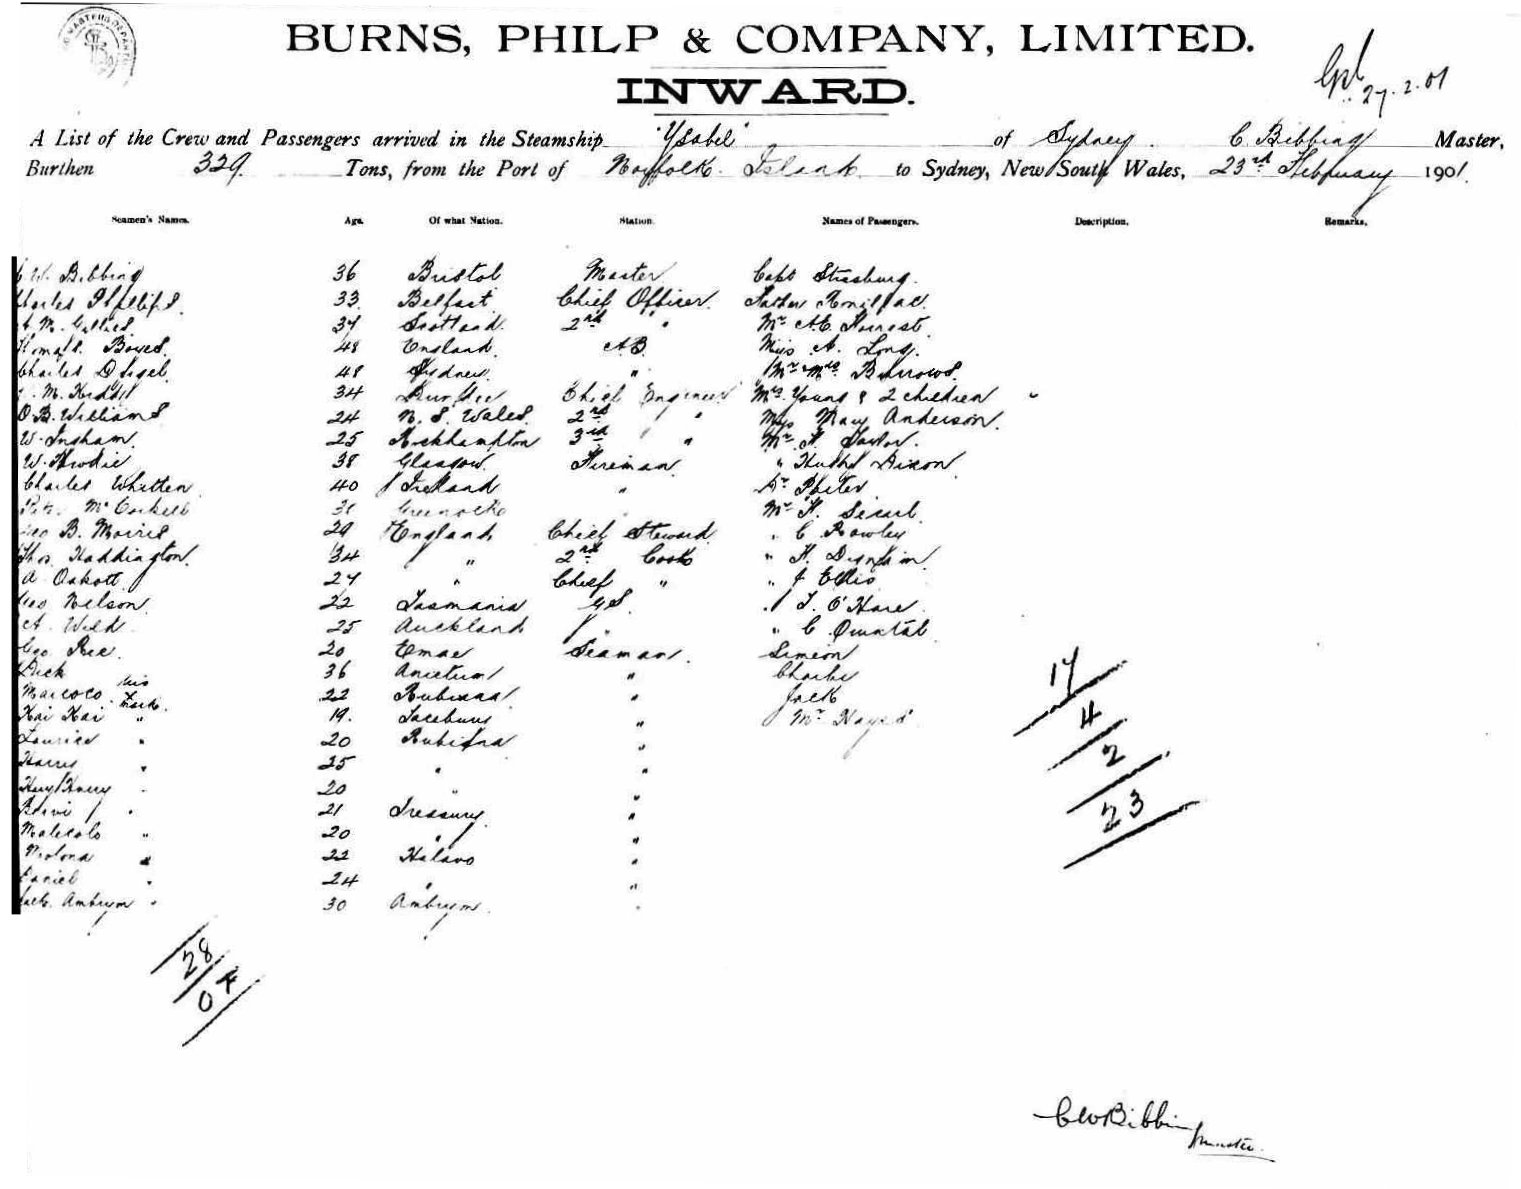 BURNS, PHILP & COMPANY, LIMITED.
INWARD.
27.2.01
A List of the Crew and Passengers arrived in the Steamship "Ysabel" of Sydney. C. Bibbing Master,
Burthen 329. Tons, from the Port of Norfolk Island to Sydney, New South Wales, 23rd February 1901.
Seamen's Names. Age. Of what Nation. Station. Names of Passengers. Description. Remarks.
W. Bibbing 36 Bristol Master Capt Strasburg.
Charles Phillips. 33. Belfast Chief Officer.
A. M. Gillies. 37 Scotland. 2nd " Mr Forrest.
Thomas. Boyes. 48 England. AB. Miss A. Long.
Charles 48 Sydney. " Mr & Mrs Burrows.
M. 34 Dundee Chief Engineer Mrs Young & 2 children "
O. B. Williams 24 N. S. Wales. 2nd " Miss Mary Anderson.
W. Ingham. 25 Rockhampton 3rd " Mr
W. Brodie 38 Glasgow. Fireman " Dixon
Charles Whitten 40 Ireland " Porter
Mc Corkell 31 Greenock " Mr
Geo B. Morris 29 England Chief Steward. " C Rowley
Thos. Haddington. 34 " 2nd Cook "
A. Oakott 27 " Chief " " J Ellis
Geo Nelson. 22 Tasmania G.S. " T. O'Hare.
A. Wild 25 Auckland " " C Quintal
Geo 20 Emae Seaman. Simeon
Dick his 36 Aneitum " Charlie
Maicoco mark. 22 Rubiana " Jack
Kai Kai " 19. " Mr Hayes
" 20 Rubiana "
Harry " 25 " "
" 20 " "
" 21 Treasury "
Malecolo " 20 " "
" 22 Halavo "
Daniel " 24 " "
Jack Ambrym " 30 Ambrym. "
17
4
2
23
28
04
C W Bibbing
Master.